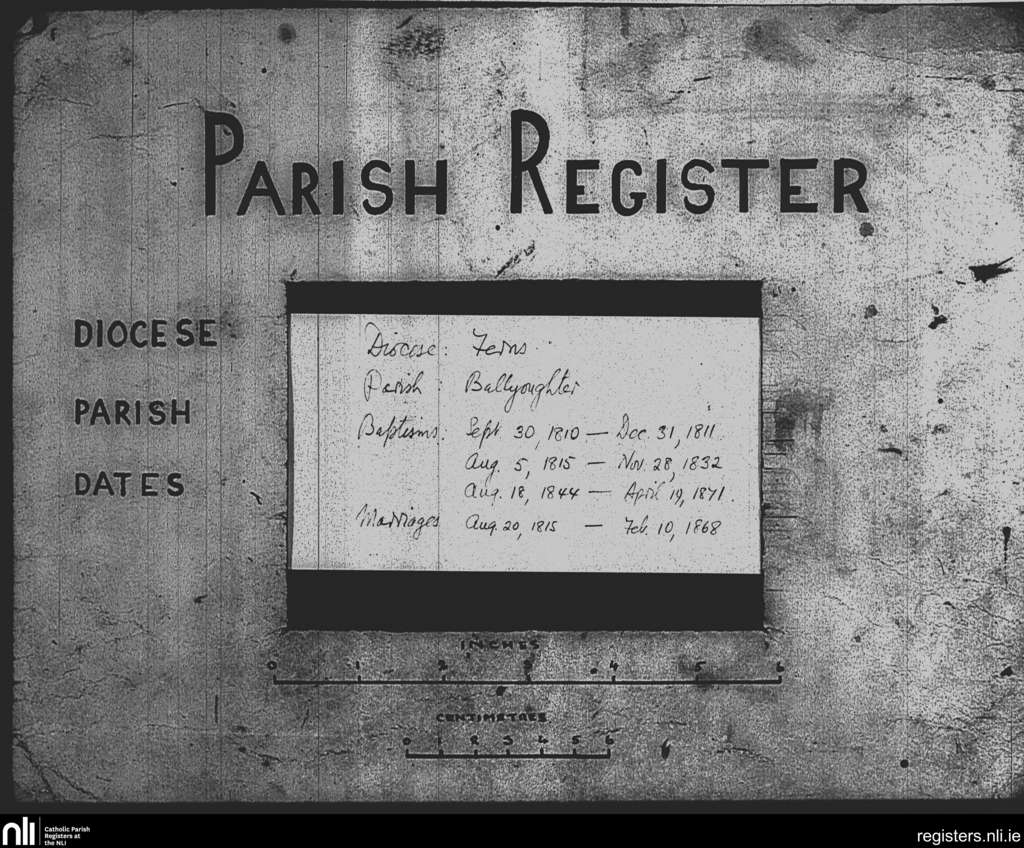 PARISH REGISTER
DIOCESE
PARISH
DATES
Diocese : Ferns
Parish : Ballyoughter
Baptisms: Sept 30, 1810 — Dec. 31, 1811
Aug. 5, 1815 — Nov. 28, 1832
Aug. 18, 1844 — April 19, 1871.
Marriages Aug. 20, 1815 — Feb. 10, 1868
INCHES
0 1 2 3 4 5 6
CENTIMETRES
0 1 2 3 4 5 6
nli Catholic Parish
Registers at
the NLI
registers.nli.ie